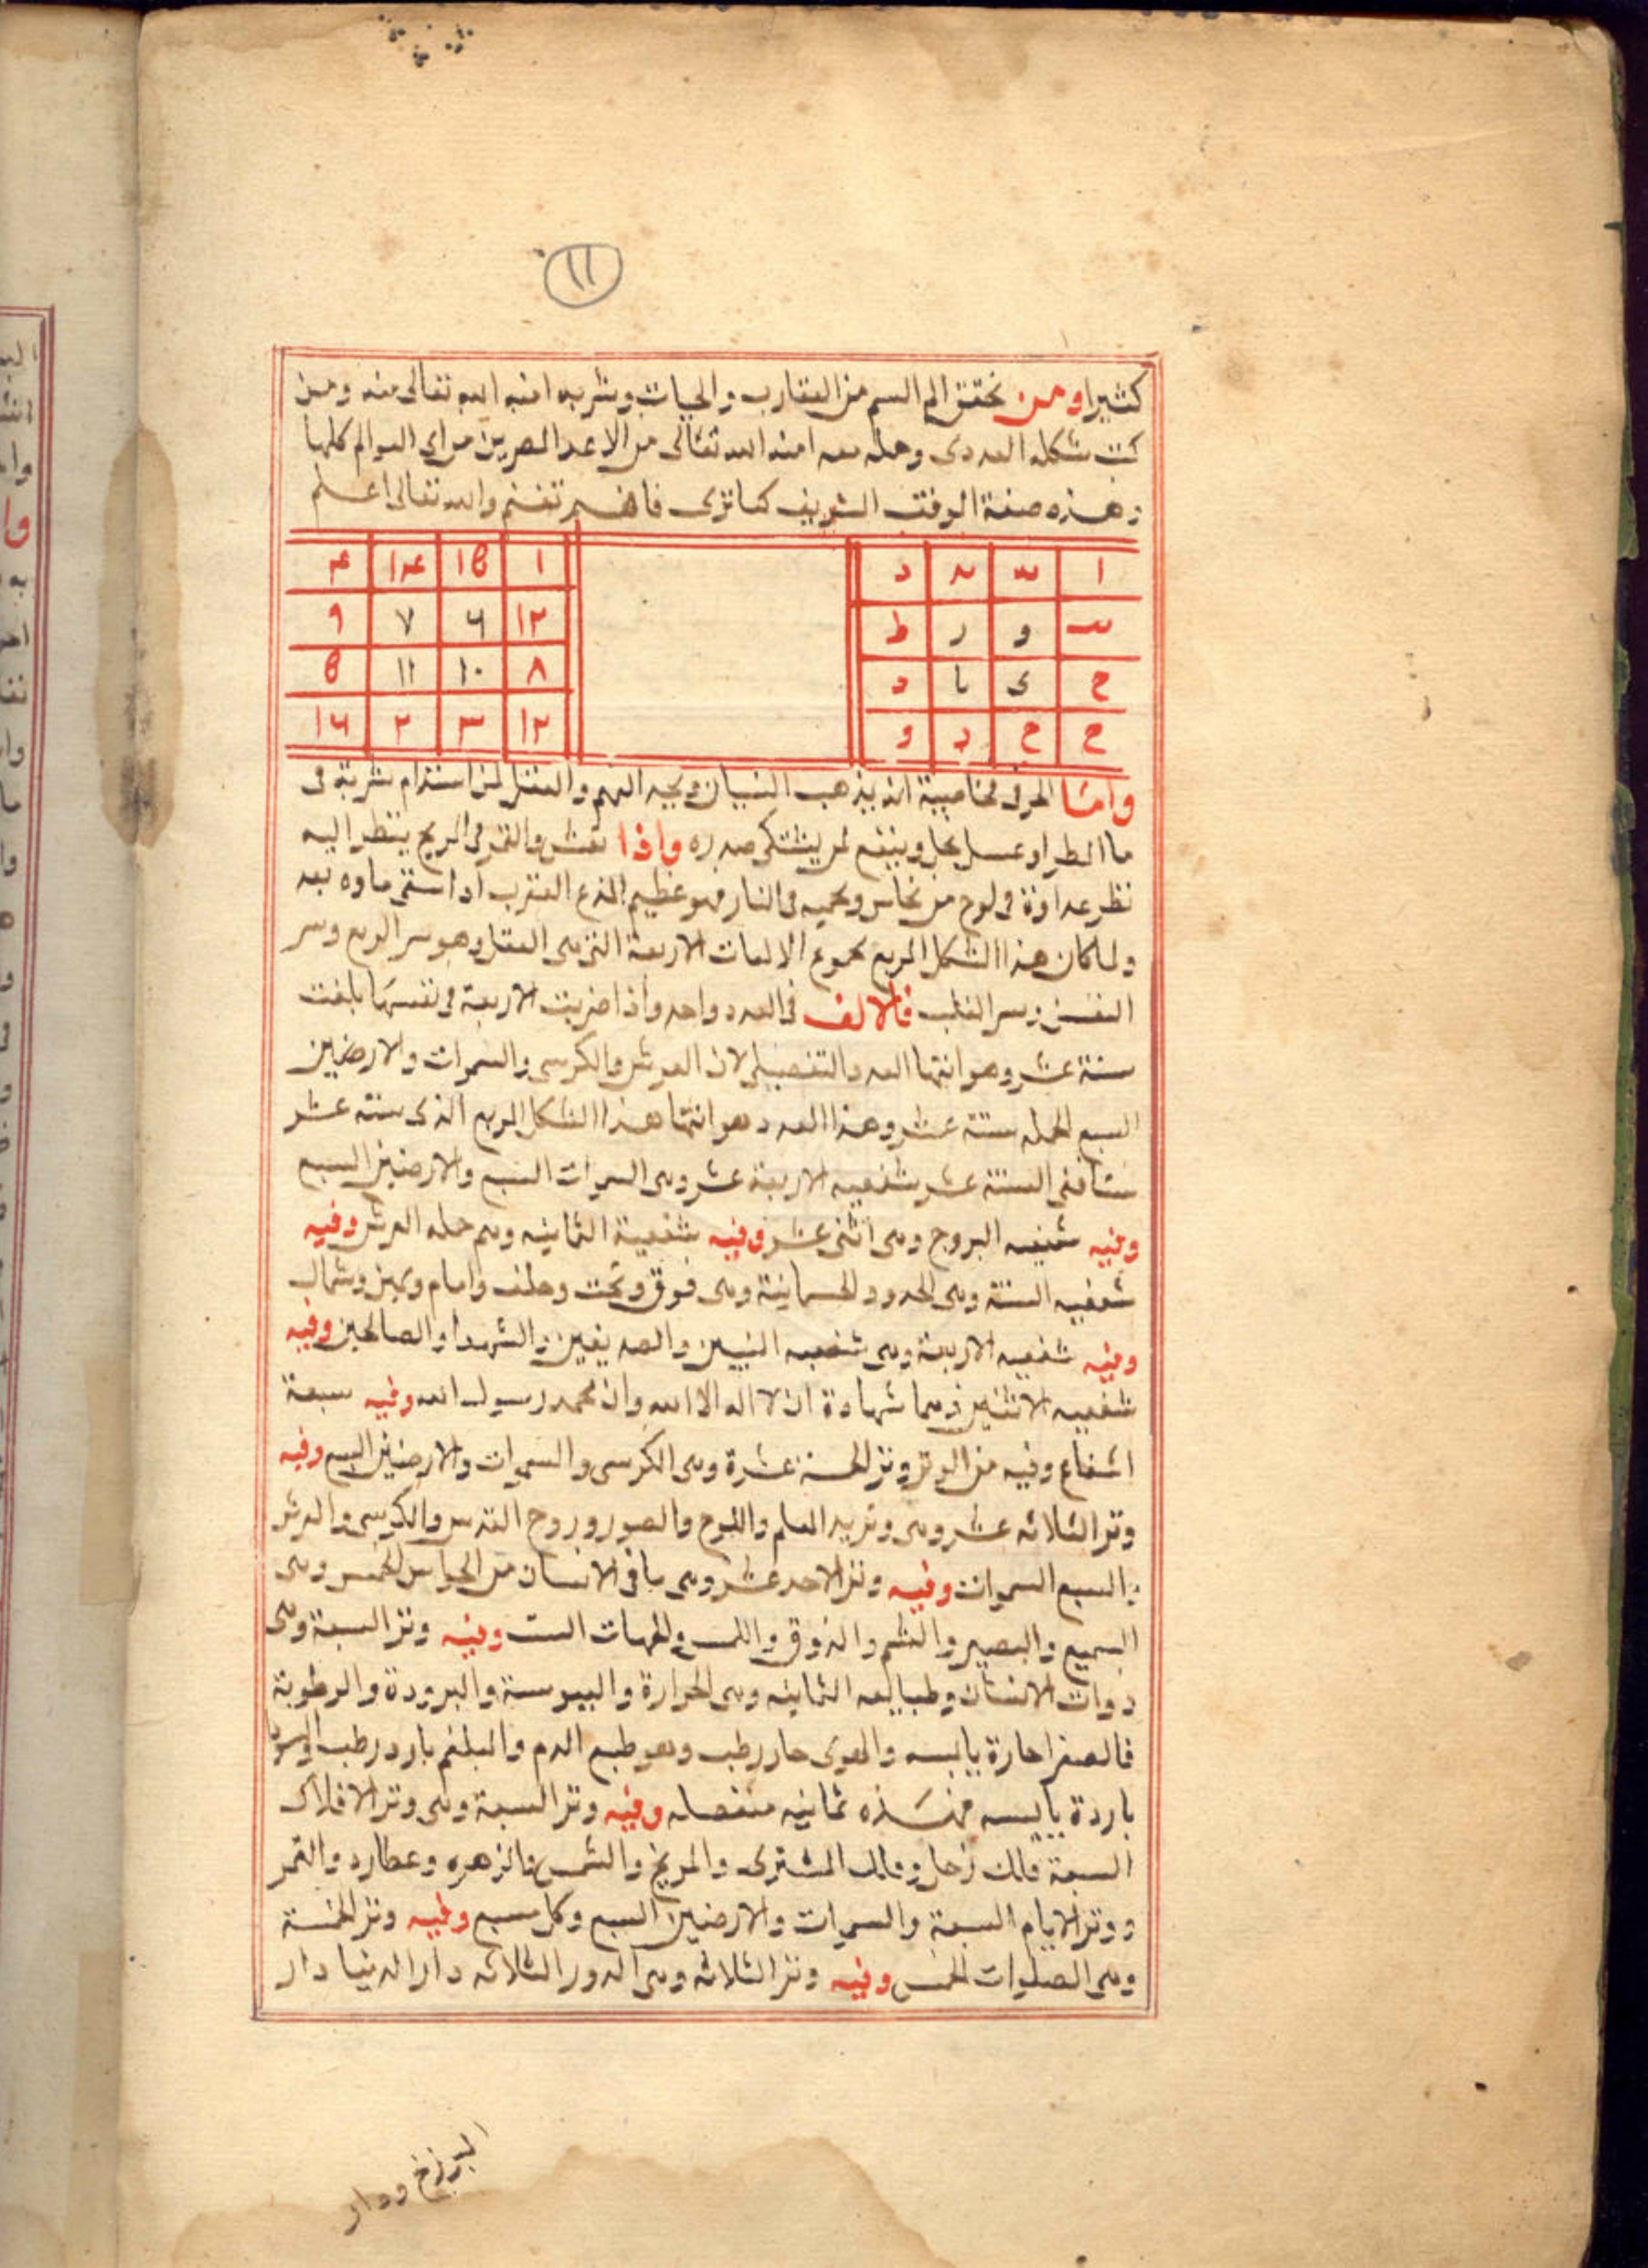 ١١
كثيرا ومن تحقق الم السم من العقارب والحيات وشربه امنه الله تعالى منه ومن
كتب شكله العددى وحمله معه امنه الله تعالى من الاعدا المصرين من اى العوالم كلها
وهذه صفة الوفق الشريف كما ترى فافهم تغنم والله تعالى اعلم
ا | | | د
| و | ر | ط
ح | ى | يا | د
ح | ح | د | و
١ | ١٥ | ١٤ | ٤
١٢ | ٦ | ٧ | ٩
٨ | ١٠ | ١١ | ٥
١٢ | ٣ | ٢ | ١٦
واما الحرفى فخاصيته انه يذهب النسيان ويجيد الفهم والعقل لمن استدام شربه فى
ما المطر او عسل نحل وينفع لمن يشتكى صدره واذا نقش والقمر فى المريخ ينظر اليه
نظر عداوة فى لوح من نحاس ويحميه فى النار فهو عظيم العقرب اذا استقى ماوه بعد
ولما كان هذا الشكل المربع مجموع الالفات الاربعة التى هى العقل وهو سر الروح وسر
النفس وسر القلب فالالف فى العدد واحد واذا ضربت الاربعة فى نفسها بلغت
ستة عشر وهو انتها العدد والتفصيل لان العرش والكرسى والسموات والارضين
السبع الجمله ستة عشر وهذا العدد هو انتها هذا الشكل المربع الذى سته عشر
ستا ففى الستة عشر شفعيه الاربعة عشر وهى السموات السبع والارضين السبع
وفيه شفعيه البروج وهى اثنى عشر وفيه شفعية الثمانيه وهم حمله العرش وفيه
شفعيه الستة وهى الحدود الجسمانية وهى فوق وتحت وخلف وامام ويمين وشمال
وفيه شفعيه الاربعة وهى شفعيه النبيين والصديقين والشهدا والصالحين وفيه
شفعيه الاثنين وهما شهادة ان لا اله الا الله وان محمد رسول الله وفيه سبعة
اشفاع وفيه من الوتر وتر الخمسة عشرة وهى الكرسى والسموات والارضين السبع وفيه
وتر الثلاثه عشر وهى وتريه القلم واللوح والصور وروح القدس والكرسى والعرش
والسبع السموات وفيه وتر الاحد عشر وهى ما فى الانسان من الحواس الخمس وهى
السميع والبصير والشم والذوق واللمس والجهات الست وفيه وتر السبعة وهى
ذوات الانسان وطبايعه الثمانيه وهى الحرارة واليبوسة والبرودة والرطوبة
فالصفرا حارة يابسه والهوى حار رطب وهو طبع الدم والبلغم بارد رطب والسودا
باردة يابسه فهذه ثمانيه منفصله وفيه وتر السبعة وهى وتر الافلاك
السبعة فلك زحل وفلك المشترى والمريخ والشمس والزهره وعطارد والقمر
ووتر الايام السبعة والسموات والارضين السبع وكل سبع وفيه وتر الخمسة
وهى الصلوات الخمس وفيه وتر الثلاثه وهى الدور الثلاثه دار الدنيا دار
البرزخ ودار